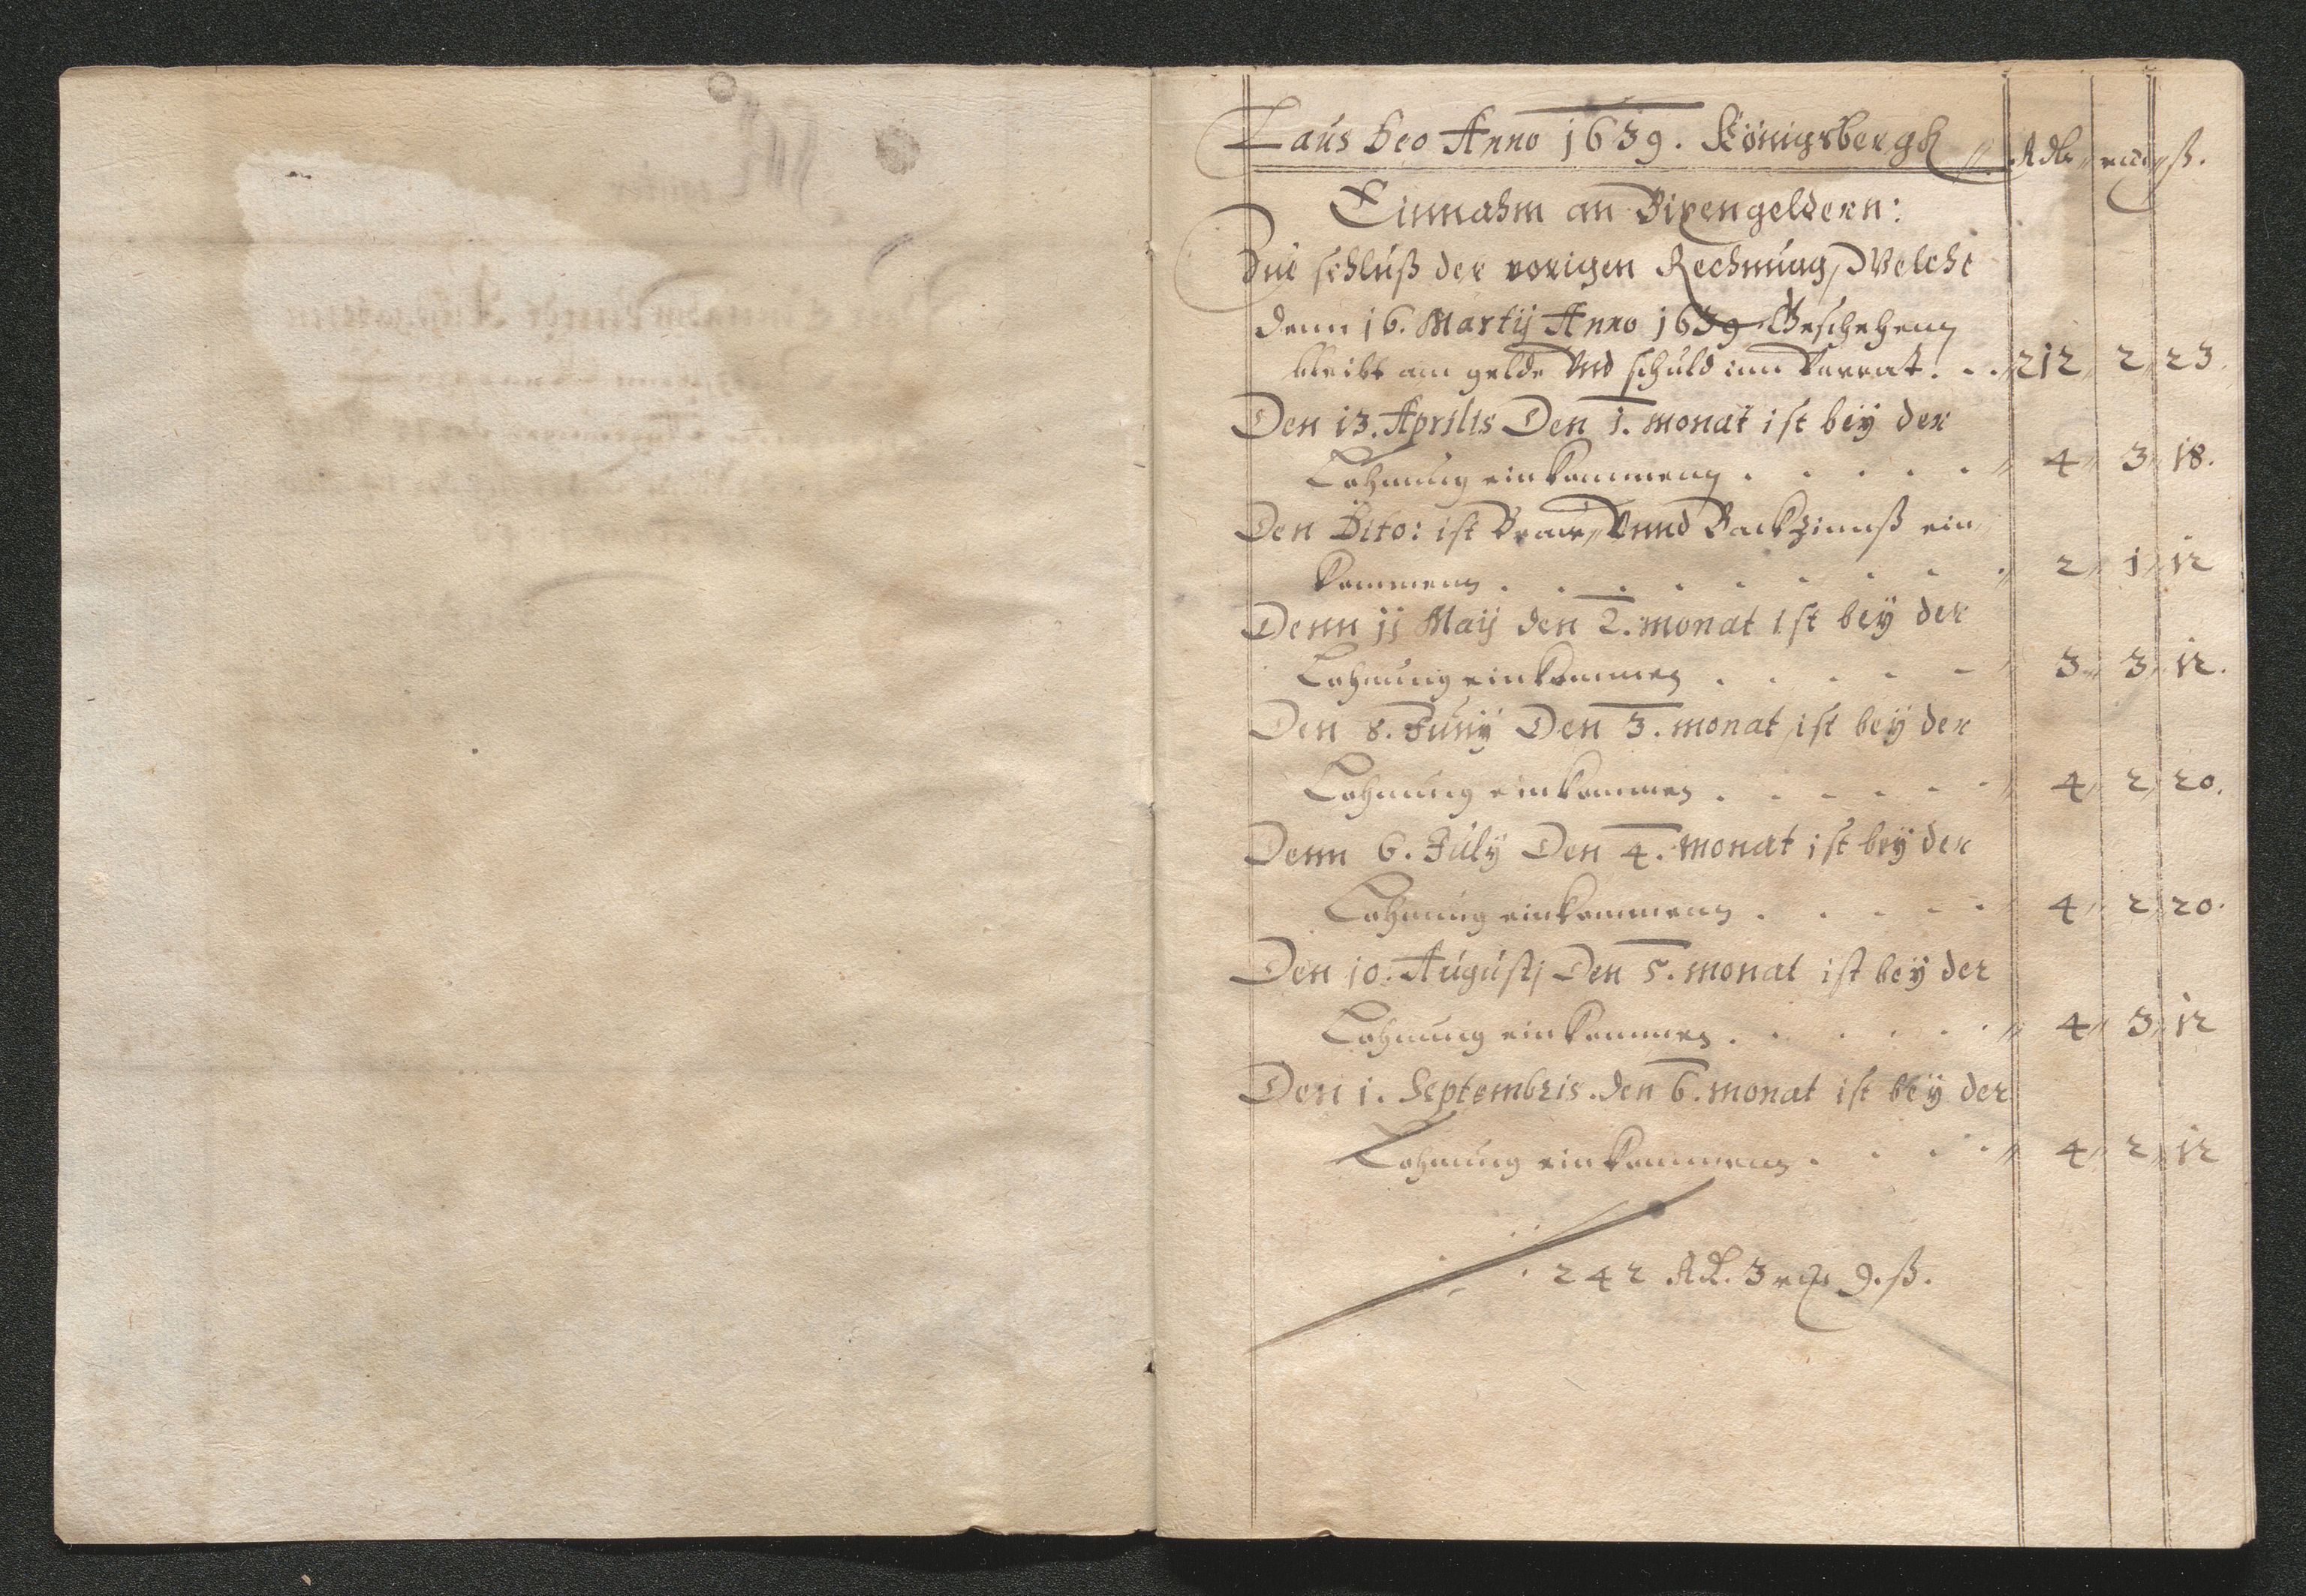 Laus Deo Anno 1639. Königsbergk Rdlr ß.
Einnahm an Bixengeldern:
schluß der vorigen Rechnung, Welche
denn 16. Martij Anno 1639 Geschehenn
bleibt am gelde vnd schuld inn Vorrat. . . 212 2 23.
Den 13. Aprilis Den 1. monat ist bey der
Lohnung einkommenn . . . . . 4 3 18.
Den Dito: ist Braw, Vnnd Backzinnß ein
kommenn . . . . . . . . . 2 1 12
Denn 11 Maij den 2. monat ist bey der
Lohnung einkommen . . . . - 3 3 12.
Den 8. Junij Den 3. monat ist bey der
Lohnung einkommen . . . . . . 4 2 20.
Denn 6. July Den 4. monat ist bey der
Lohnung einkommenn . . . . . 4 2 20.
Den 10. Augustj Den 5. monat ist bey der
Lohnung einkommen . . . . . . 4 3 12
Den 1. Septembris. den 6. monat ist bey der
Lohnung einkommenn . . . . 4 2 12
242 Rdl. 3 9. ß.